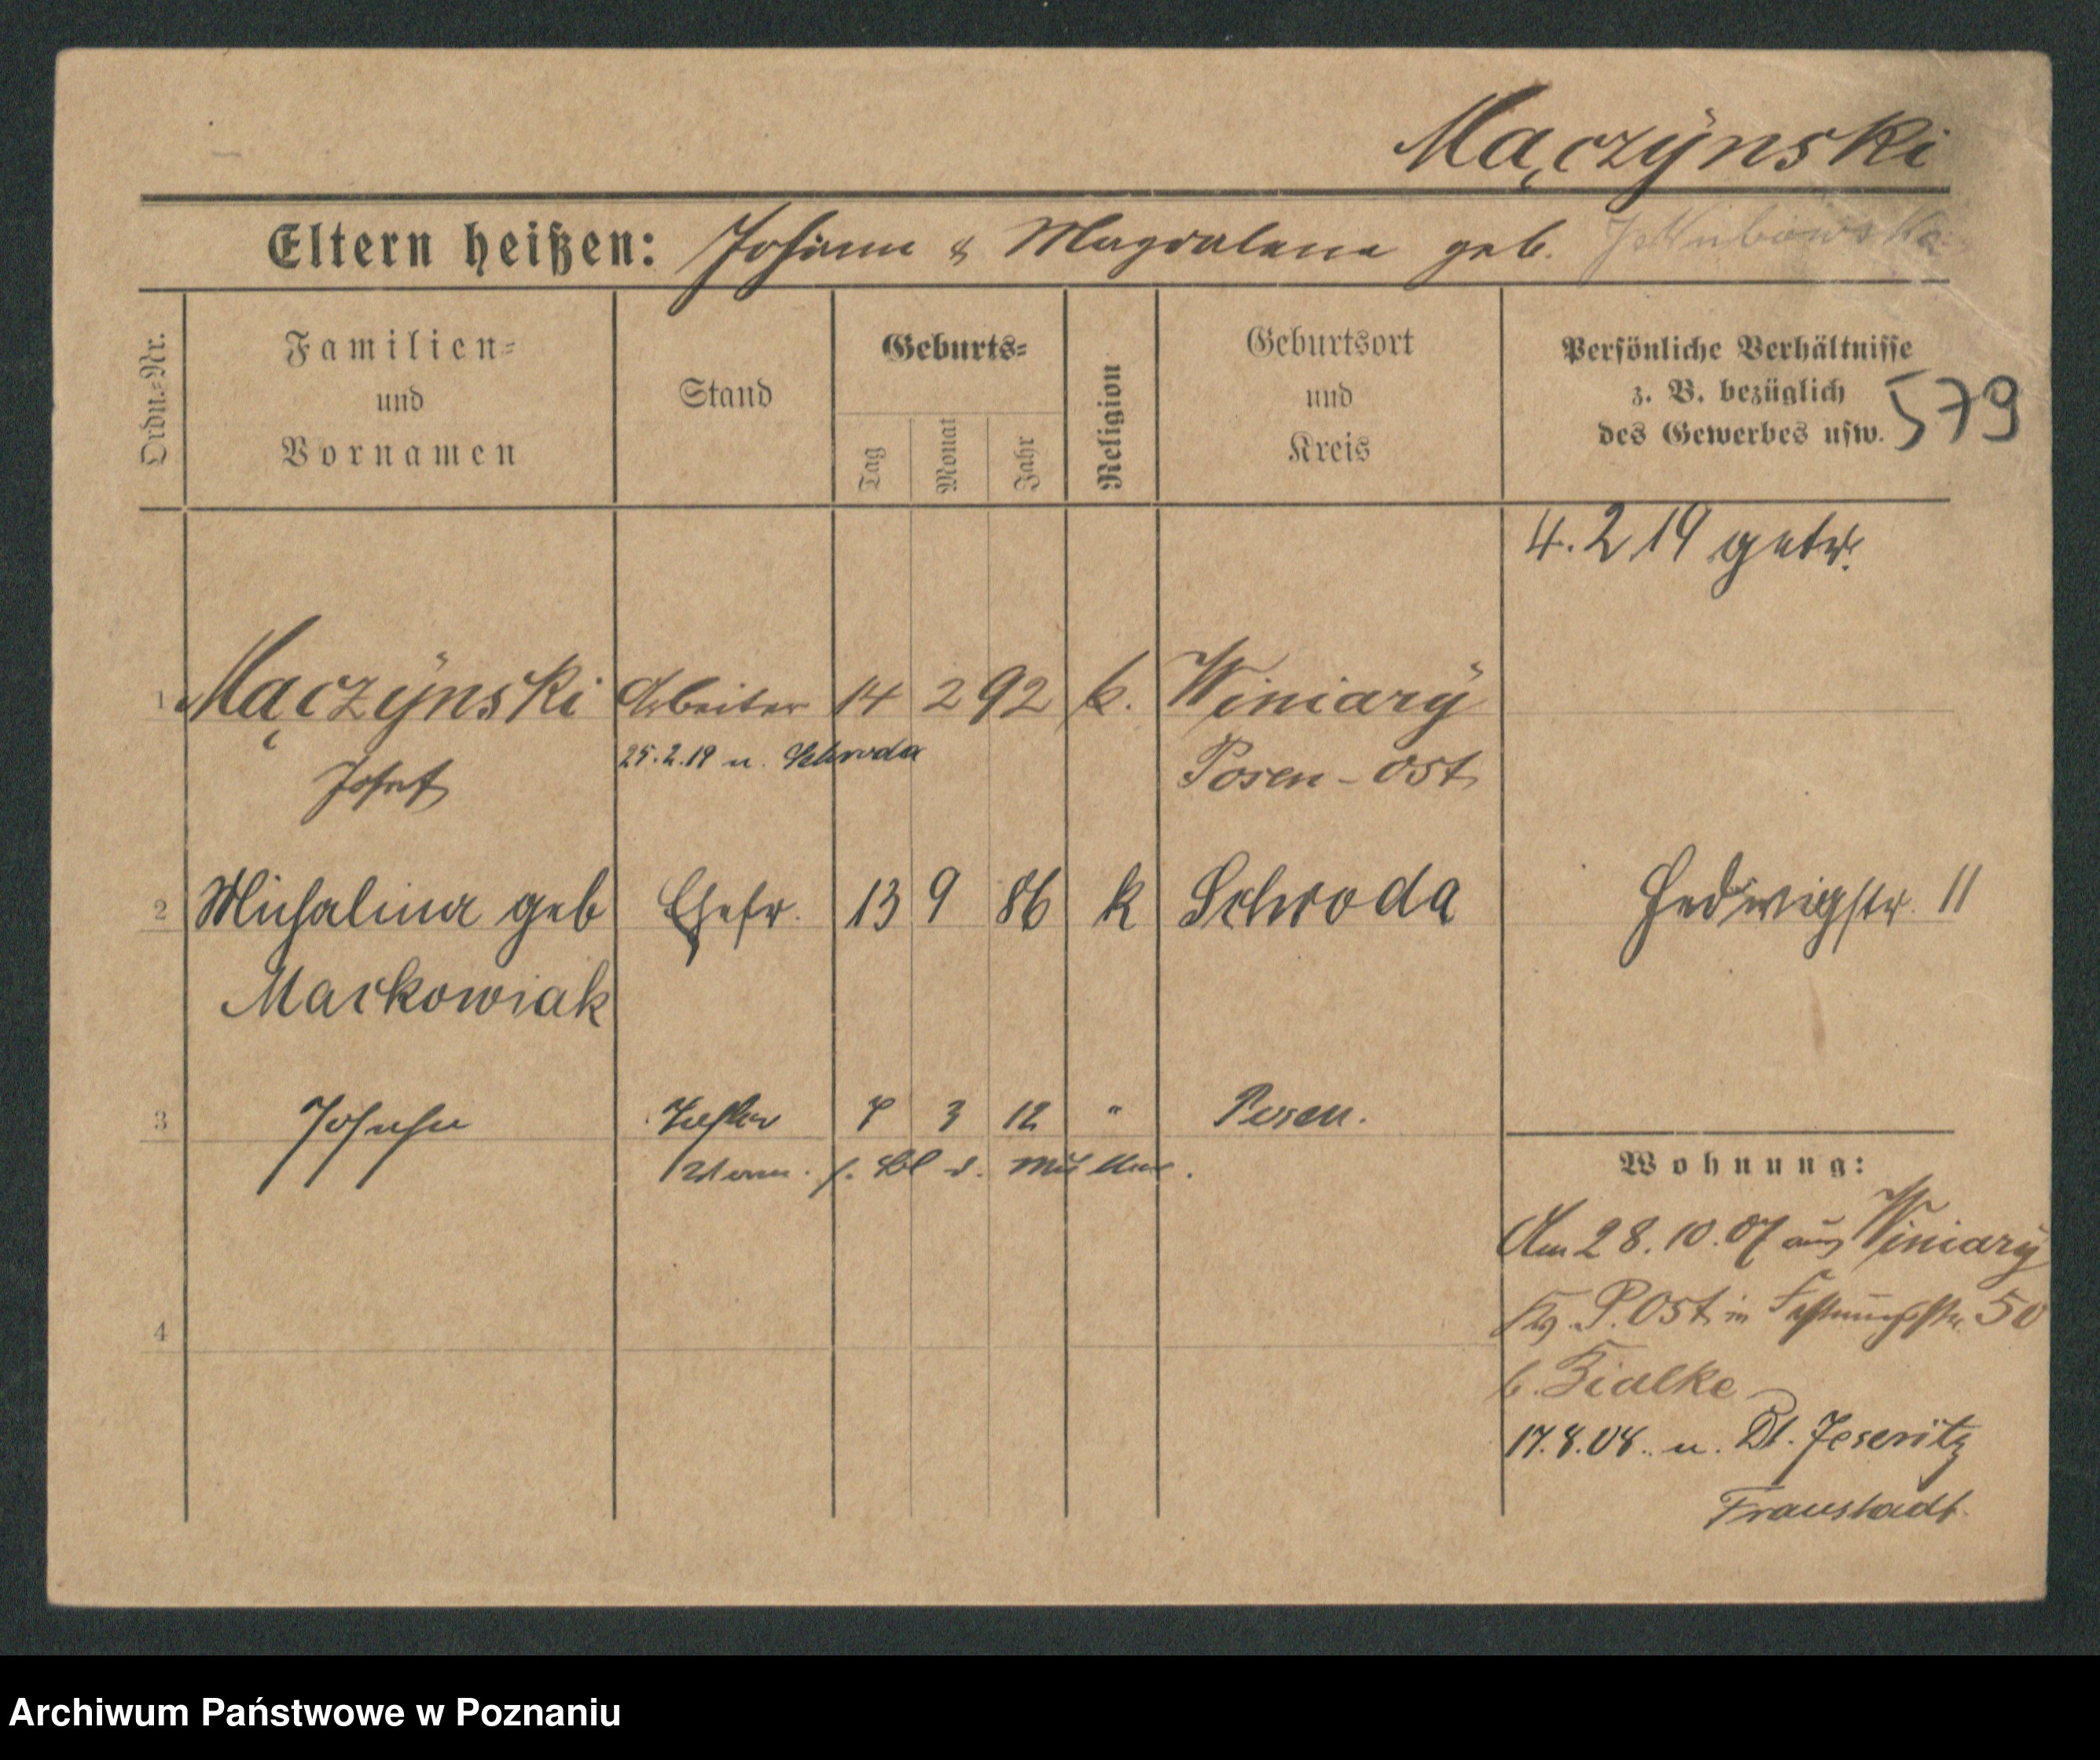 Mączÿnski
Eltern heißen: Johann & Magdalena geb. Jakubowska
Ordn.=Nr.
Familien=
und
Vornamen
Stand
Geburts=
Tag
Monat
Jahr
Religion
Geburtsort
und
Kreis
Persönliche Verhältnisse
z. B. bezüglich
des Gewerbes usw.
579
4. 2 19 getr.
1 Mączÿnski Arbeiter 14 2 92 k. Winiarÿ
Josef 25.2.19 n. Schroda Posen-Ost
2 Michalina geb Ehefr. 13 9 86 k Schroda Hedwigstr. 11
Markowiak
3 Tochter 3 12 " Posen.
f. Bl d. Mutter.
Wohnung:
Am 28.10.07 aus Winiarÿ
Kr. P. Ost in Festungsstr. 50
b. Zialke
4
17.8.08. n. Dt. Jeseritz
Fraustadt.
Archiwum Państwowe w Poznaniu